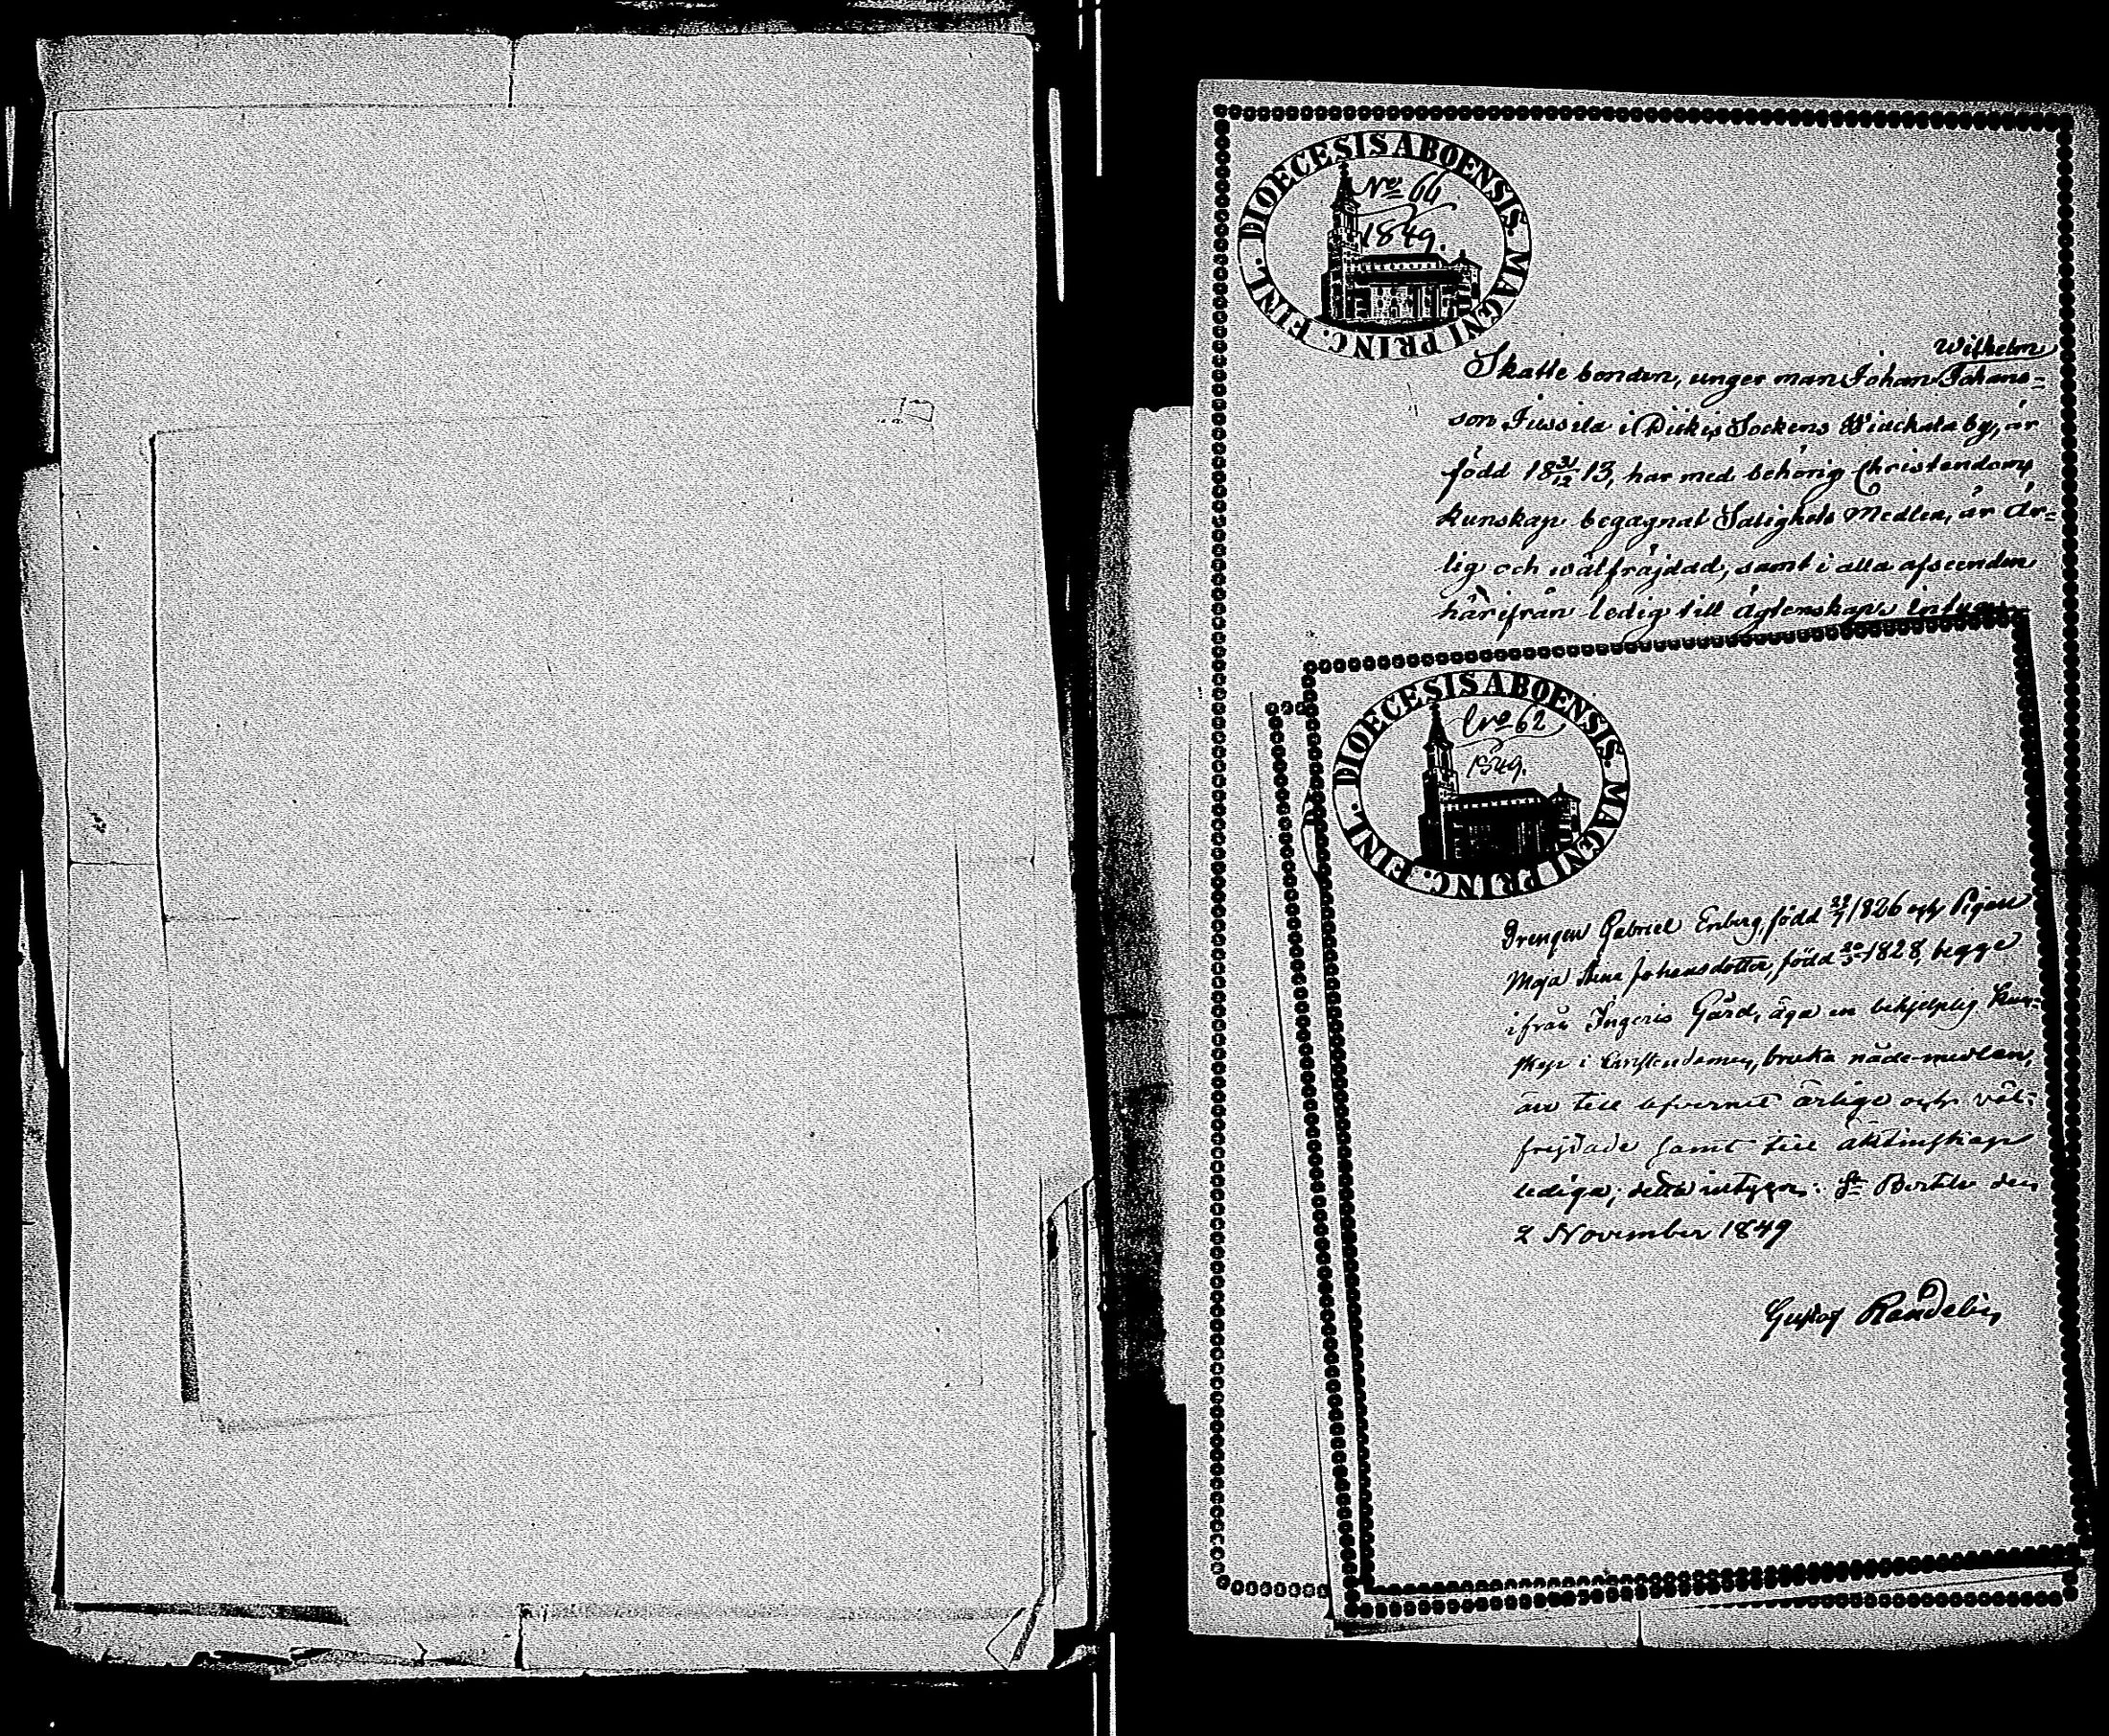 DIOECESIS ABOENSIS. MAGNI PRINC. FINL.
No 66
1849.
Wilhelm
Skattebonden, unge man Johan Johans-
son Jussila i Pikis Sockens Wiachala by, är
född 18 31/12 13, har med behörig Christendoms
kunskap begagnat Salighets Medlen, är Är-
lig och wälfräjdad, samt i alla afseenden
härifrån ledig till Ägtenskap,
DIOECESIS ABOENSIS. MAGNI PRINC. FINL.
No 62
1849.
Drengen Gabriel Enberg, född 1826 och Pigan
Maja Johansdotter, född 20/3 1828, begge
ifrån Ingeris Gård, äga en behjelplig kun-
skap i Christendomen, bruka nåde-medlen,
äro till lefvernet ärlige och väl-
frejdade samt till äktenskap
lediga; detta intygar: St Bertils den
2 November 1849
Gustof Randelin